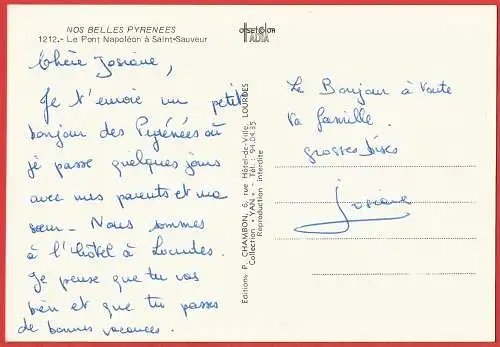 NOS BELLES PYRENEES
1212.- Le Pont Napoléon à Saint-Sauveur
Chère Josiane,
Je t'envoie un petit
bonjour des Pyrénées où
je passe quelques jours
avec mes parents et ma
sœur - Nous sommes
à l'hôtel à Lourdes.
Je pense que tu vas
bien et que tu passes
de bonnes vacances.
Editions P. CHAMBON, 6, rue Hôtel-de-Ville, LOURDES
Collection "YAN" - Tél.: 94.04.35
Reproduction interdite
OFFSET COLOR
Le Bonjour à toute
ta famille.
grosses bises
Josiane